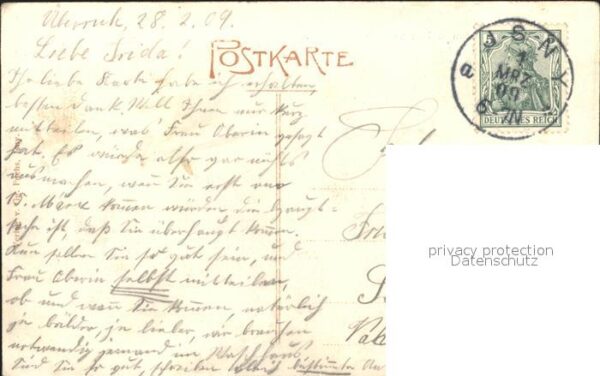 Überruh, 28.2.09.
Liebe Frida!
POSTKARTE
Ihre liebe Karte habe ich erhalten
besten Dank. Will Ihnen nur kurz
mitteilen, was Frau Oberin gesagt
hat. Es würde also gar nichts
ausmachen, wenn Sie erst am
15. März kommen würden die Haupt-
sache ist, daß Sie überhaupt kommen.
Nun sollen Sie so gut sein, und
Frau Oberin selbst mitteilen,
ob und wann Sie kommen, natürlich
je bälder, je lieber, wir brauchen
notwendig jemand im Waschhaus.
Sind Sie so gut, schreiben gleich bestimmte
JSNY
1
MRZ
09
6-7N
a
DEUTSCHES REICH
privacy protection
Datenschutz